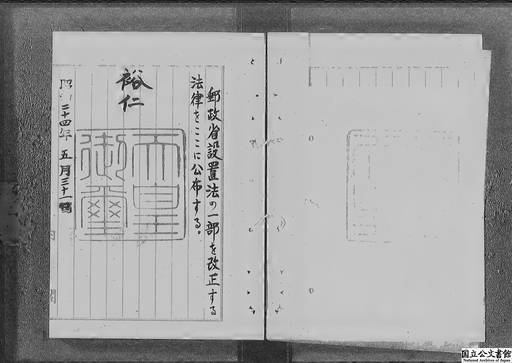 郵政省設置法の一部を改正する
法律をここに公布する。
裕仁
天皇
御璽
昭和二十四年五月三十一日
国立公文書館
National Archives of Japan